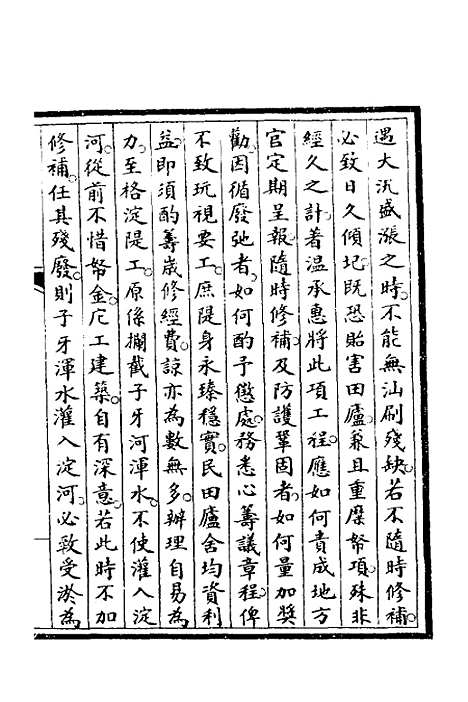 遇大汛盛漲之時。不能無汕刷殘缺。若不隨時修補。
必致日久傾圮。既恐貽害田廬。兼且重縻帑項。殊非
經久之計。著溫承惠將此項工程。應如何責成地方
官定期呈報。隨時修補。及防護鞏固者。如何量加獎
勸。因循廢弛者。如何酌予懲處。務悉心籌議章程。俾
不致玩視要工。庶隄身永臻穩實。民田廬舍均資利
益。即須酌籌歲修經費。諒亦為數無多。辦理自易為
力。至格淀隄工。原係攔截子牙河渾水。不使灌入淀
河。從前不惜帑金。庀工建築。自有深意。若此時不加
修補。任其殘廢。則子牙渾水灌入淀河。必致受淤為